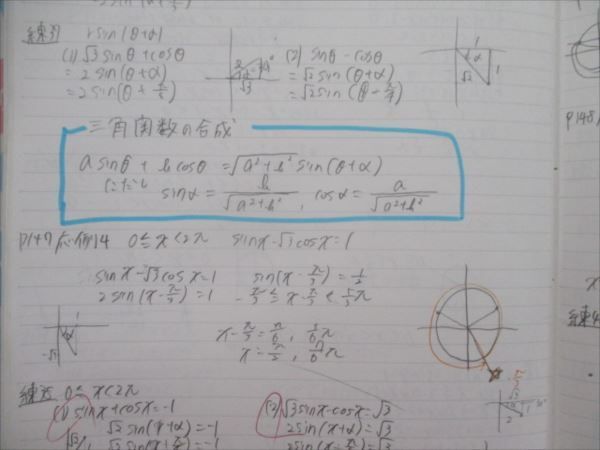 練39 rsin(θ+α)
(1) √3 sinθ+cosθ
= 2 sin(θ+α)
= 2 sin(θ+π/6)
(2) sinθ-cosθ
= √2 sin(θ+α)
= √2 sin(θ-π/4)
三角関数の合成
a sinθ + b cosθ = √(a²+b²) sin(θ+α)
ただし sinα = b/√(a²+b²) , cosα = a/√(a²+b²)
P147 応例14 0≦x<2π sinx-√3cosx=1
sinx-√3cosx=1
2sin(x-π/3)=1
sin(x-π/3)=1/2
-π/3≦x-π/3<5/3π
x-π/3=π/6, 5/6π
x=π/2, 7/6π
0≦x<2π
(1) sinx+cosx=-1
√2 sin(x+α)=-1
√2 sin(x+π/4)=-1
(2) √3sinx-cosx=√3
2sin(x+α)=√3
2sin(x-π/6)=√3
P148